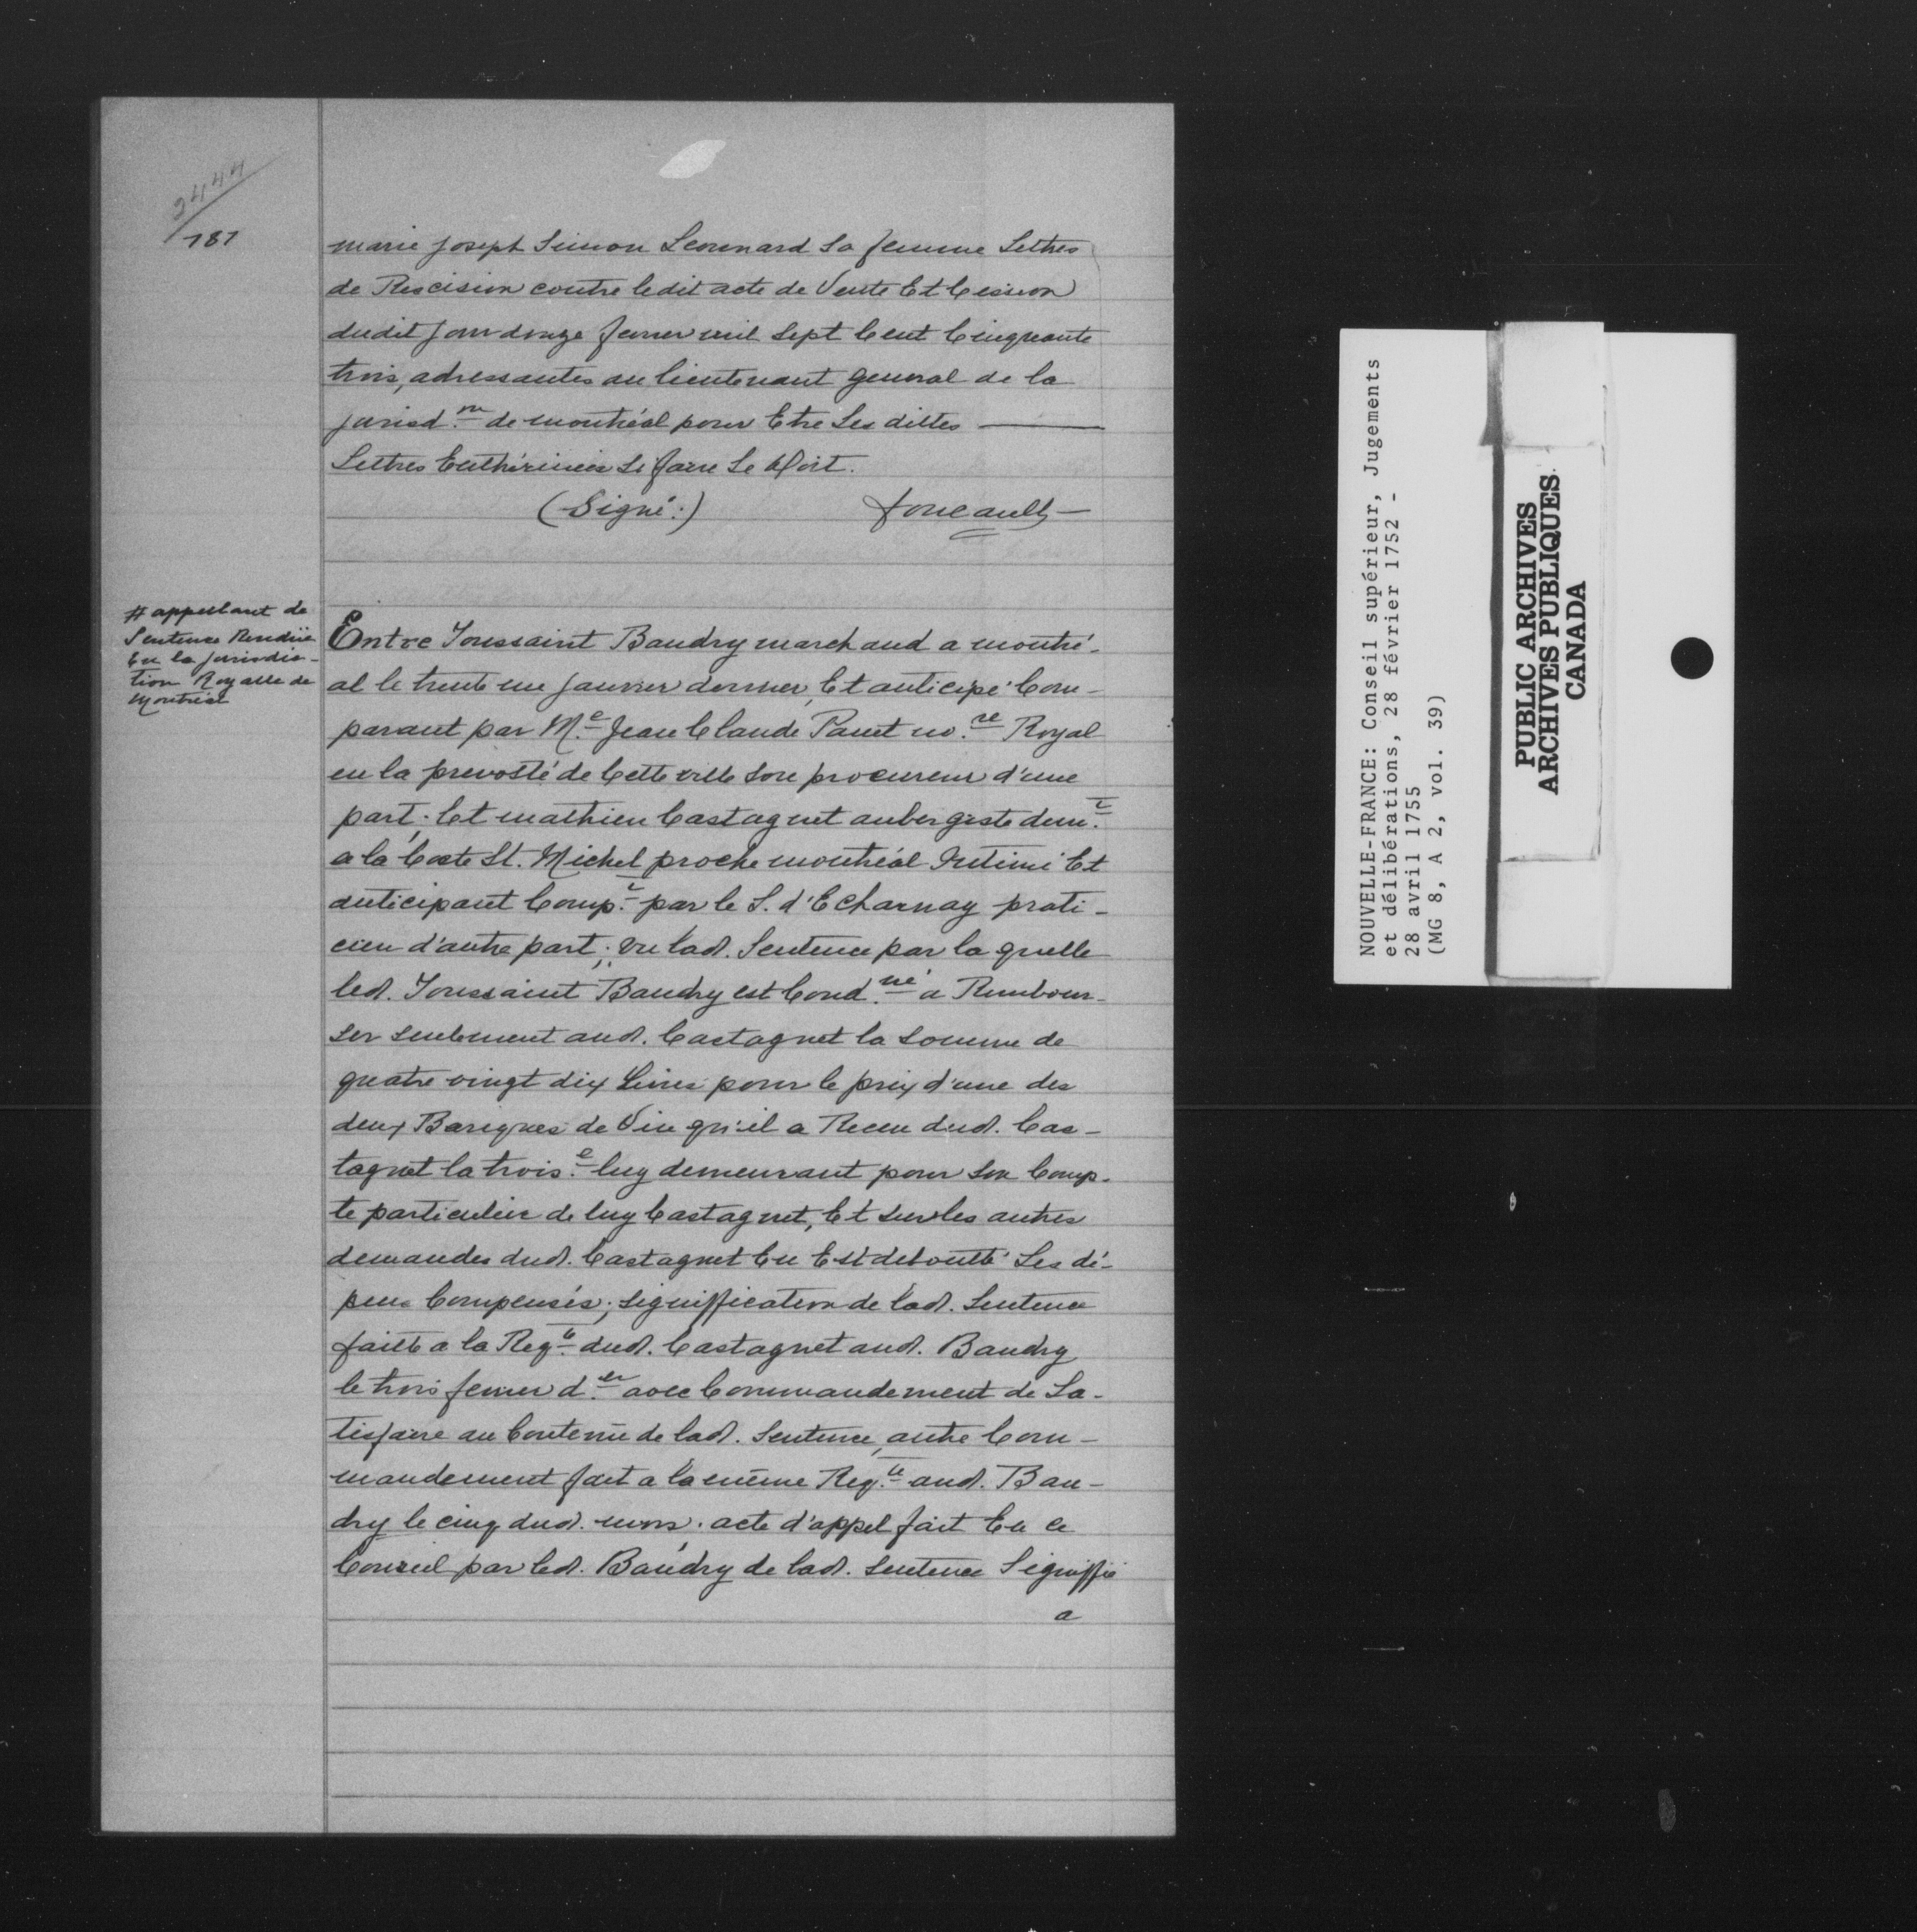 3444
181
marie joseph Simon Leonnard Sa femme Lettres
de Rescision contre ledit acte de Vente Et Cession
dudit jour douze fevrier mil Sept Cent Cinquante
trois, adressantes au lieutenant general de la
jurisd.on de montréal pour Etre Les dittes
Lettres Enthérinées Si faire Se doit.
(Signé:) foucault
# appellant de
Sentence Rendüe
En la jurisdic-
tion Royalle de
Montréal
Entre Toussaint Baudry marchand a montré-
al le trente un janvier dernier, Et anticipé Com-
parant par M.e Jean Claude Panet no.re Royal
en la prevosté de Cette ville Son procureur d'une
part; Et mathieu Castagnet aubergiste dem.t
a la Coste St. Michel proche montréal Intimé Et
anticipant Comp.t par le S. d'Echarnay prati-
cien d'autre part; vu lad. Sentence par la quelle
led. Toussaint Baudry est Cond.né a Rembour-
ser seulement aud. Castagnet la Somme de
quatre vingt dix Livres pour le prix d'une des
deux Bariques de Vin qu'il a Receu dud. Cas-
tagnet la trois.e luy demeurant pour Son Comp-
te particulier de luy Castagnet, Et sur les autres
demandes dud. Castagnet En Est debouté Les dé-
pens Compensés; signiffication de lad. Sentence
faitte a la Reqte dud. Castagnet aud. Baudry
le trois fevrier d.er avec Commandement de Sa-
tisfaire au Contenü de lad. Sentence, autre Com-
mandement fait a la même Req.te aud. Bau-
dry le cinq dud. mois; acte d'appel fait En ce
Conseil par led. Baudry de lad. sentence Signiffié
a
NOUVELLE-FRANCE: Conseil supérieur, Jugements
et délibérations, 28 février 1752 -
28 avril 1755
(MG 8, A 2, vol. 39)
PUBLIC ARCHIVES
ARCHIVES PUBLIQUES
CANADA